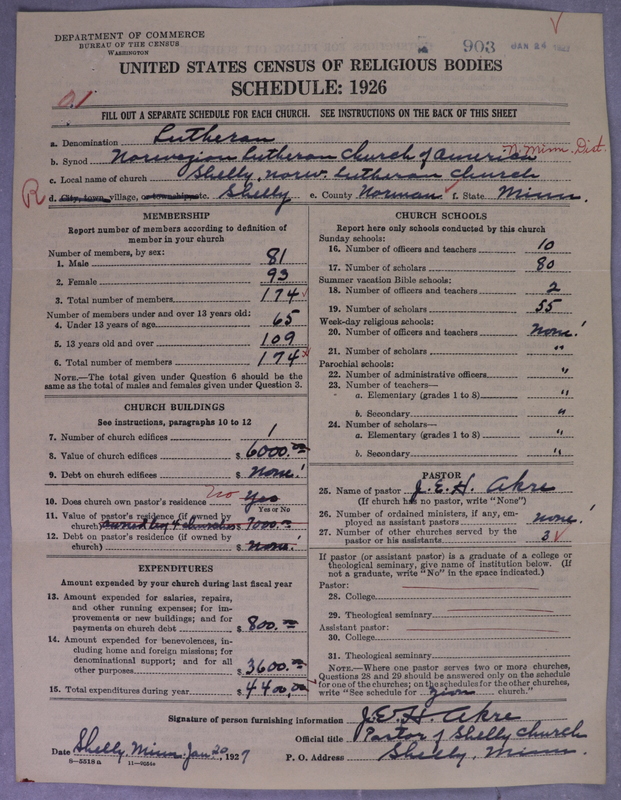 DEPARTMENT OF COMMERCE
BUREAU OF THE CENSUS
WASHINGTON
903 JAN 24
UNITED STATES CENSUS OF RELIGIOUS BODIES
SCHEDULE: 1926
FILL OUT A SEPARATE SCHEDULE FOR EACH CHURCH. SEE INSTRUCTIONS ON THE BACK OF THIS SHEET
a. Denomination Lutheran
b. Synod Norwegian Lutheran Church of America N. Minn. Dist.
c. Local name of church Shelly, norw. Lutheran Church
R d. City, town, village, or township etc. Shelly e. County Norman f. State Minn.
MEMBERSHIP
Report number of members according to definition of
member in your church
Number of members, by sex:
1. Male 81
2. Female 93
3. Total number of members 174
Number of members under and over 13 years old:
4. Under 13 years of age 65
5. 13 years old and over 109
6. Total number of members 174
NOTE.—The total given under Question 6 should be the
same as the total of males and females given under Question 3.
CHURCH BUILDINGS
See instructions, paragraphs 10 to 12
7. Number of church edifices 1
8. Value of church edifices $ 6000.00
9. Debt on church edifices $ none!
10. Does church own pastor's residence no yes
Yes or No
11. Value of pastor's residence (if owned by
church) owned by 4 churches $ 7000.00
12. Debt on pastor's residence (if owned by
church) $ none!
EXPENDITURES
Amount expended by your church during last fiscal year
13. Amount expended for salaries, repairs,
and other running expenses; for im-
provements or new buildings; and for
payments on church debt $ 800.00
14. Amount expended for benevolences, in-
cluding home and foreign missions; for
denominational support; and for all
other purposes $ 3600.00
15. Total expenditures during year $ 4400.00
CHURCH SCHOOLS
Report here only schools conducted by this church
Sunday schools:
16. Number of officers and teachers 10
17. Number of scholars 80
Summer vacation Bible schools:
18. Number of officers and teachers 2
19. Number of scholars 55
Week-day religious schools:
20. Number of officers and teachers none!
21. Number of scholars "
Parochial schools:
22. Number of administrative officers "
23. Number of teachers—
a. Elementary (grades 1 to 8) "
b. Secondary "
24. Number of scholars—
a. Elementary (grades 1 to 8) "
b. Secondary "
PASTOR
25. Name of pastor J. E. H. Akre
(If church has no pastor, write "None")
26. Number of ordained ministers, if any, em-
ployed as assistant pastors none!
27. Number of other churches served by the
pastor or his assistants 3
If pastor (or assistant pastor) is a graduate of a college or
theological seminary, give name of institution below. (If
not a graduate, write "No" in the space indicated.)
Pastor:
28. College
29. Theological seminary
Assistant pastor:
30. College
31. Theological seminary
NOTE.—Where one pastor serves two or more churches,
Questions 28 and 29 should be answered only on the schedule
for one of the churches; on the schedules for the other churches,
write "See schedule for Zion church."
Signature of person furnishing information J. E. H. Akre
Official title Pastor of Shelly Church
Date Shelly, Minn. Jan. 20, 1927 P. O. Address Shelly, Minn.
8—5518a